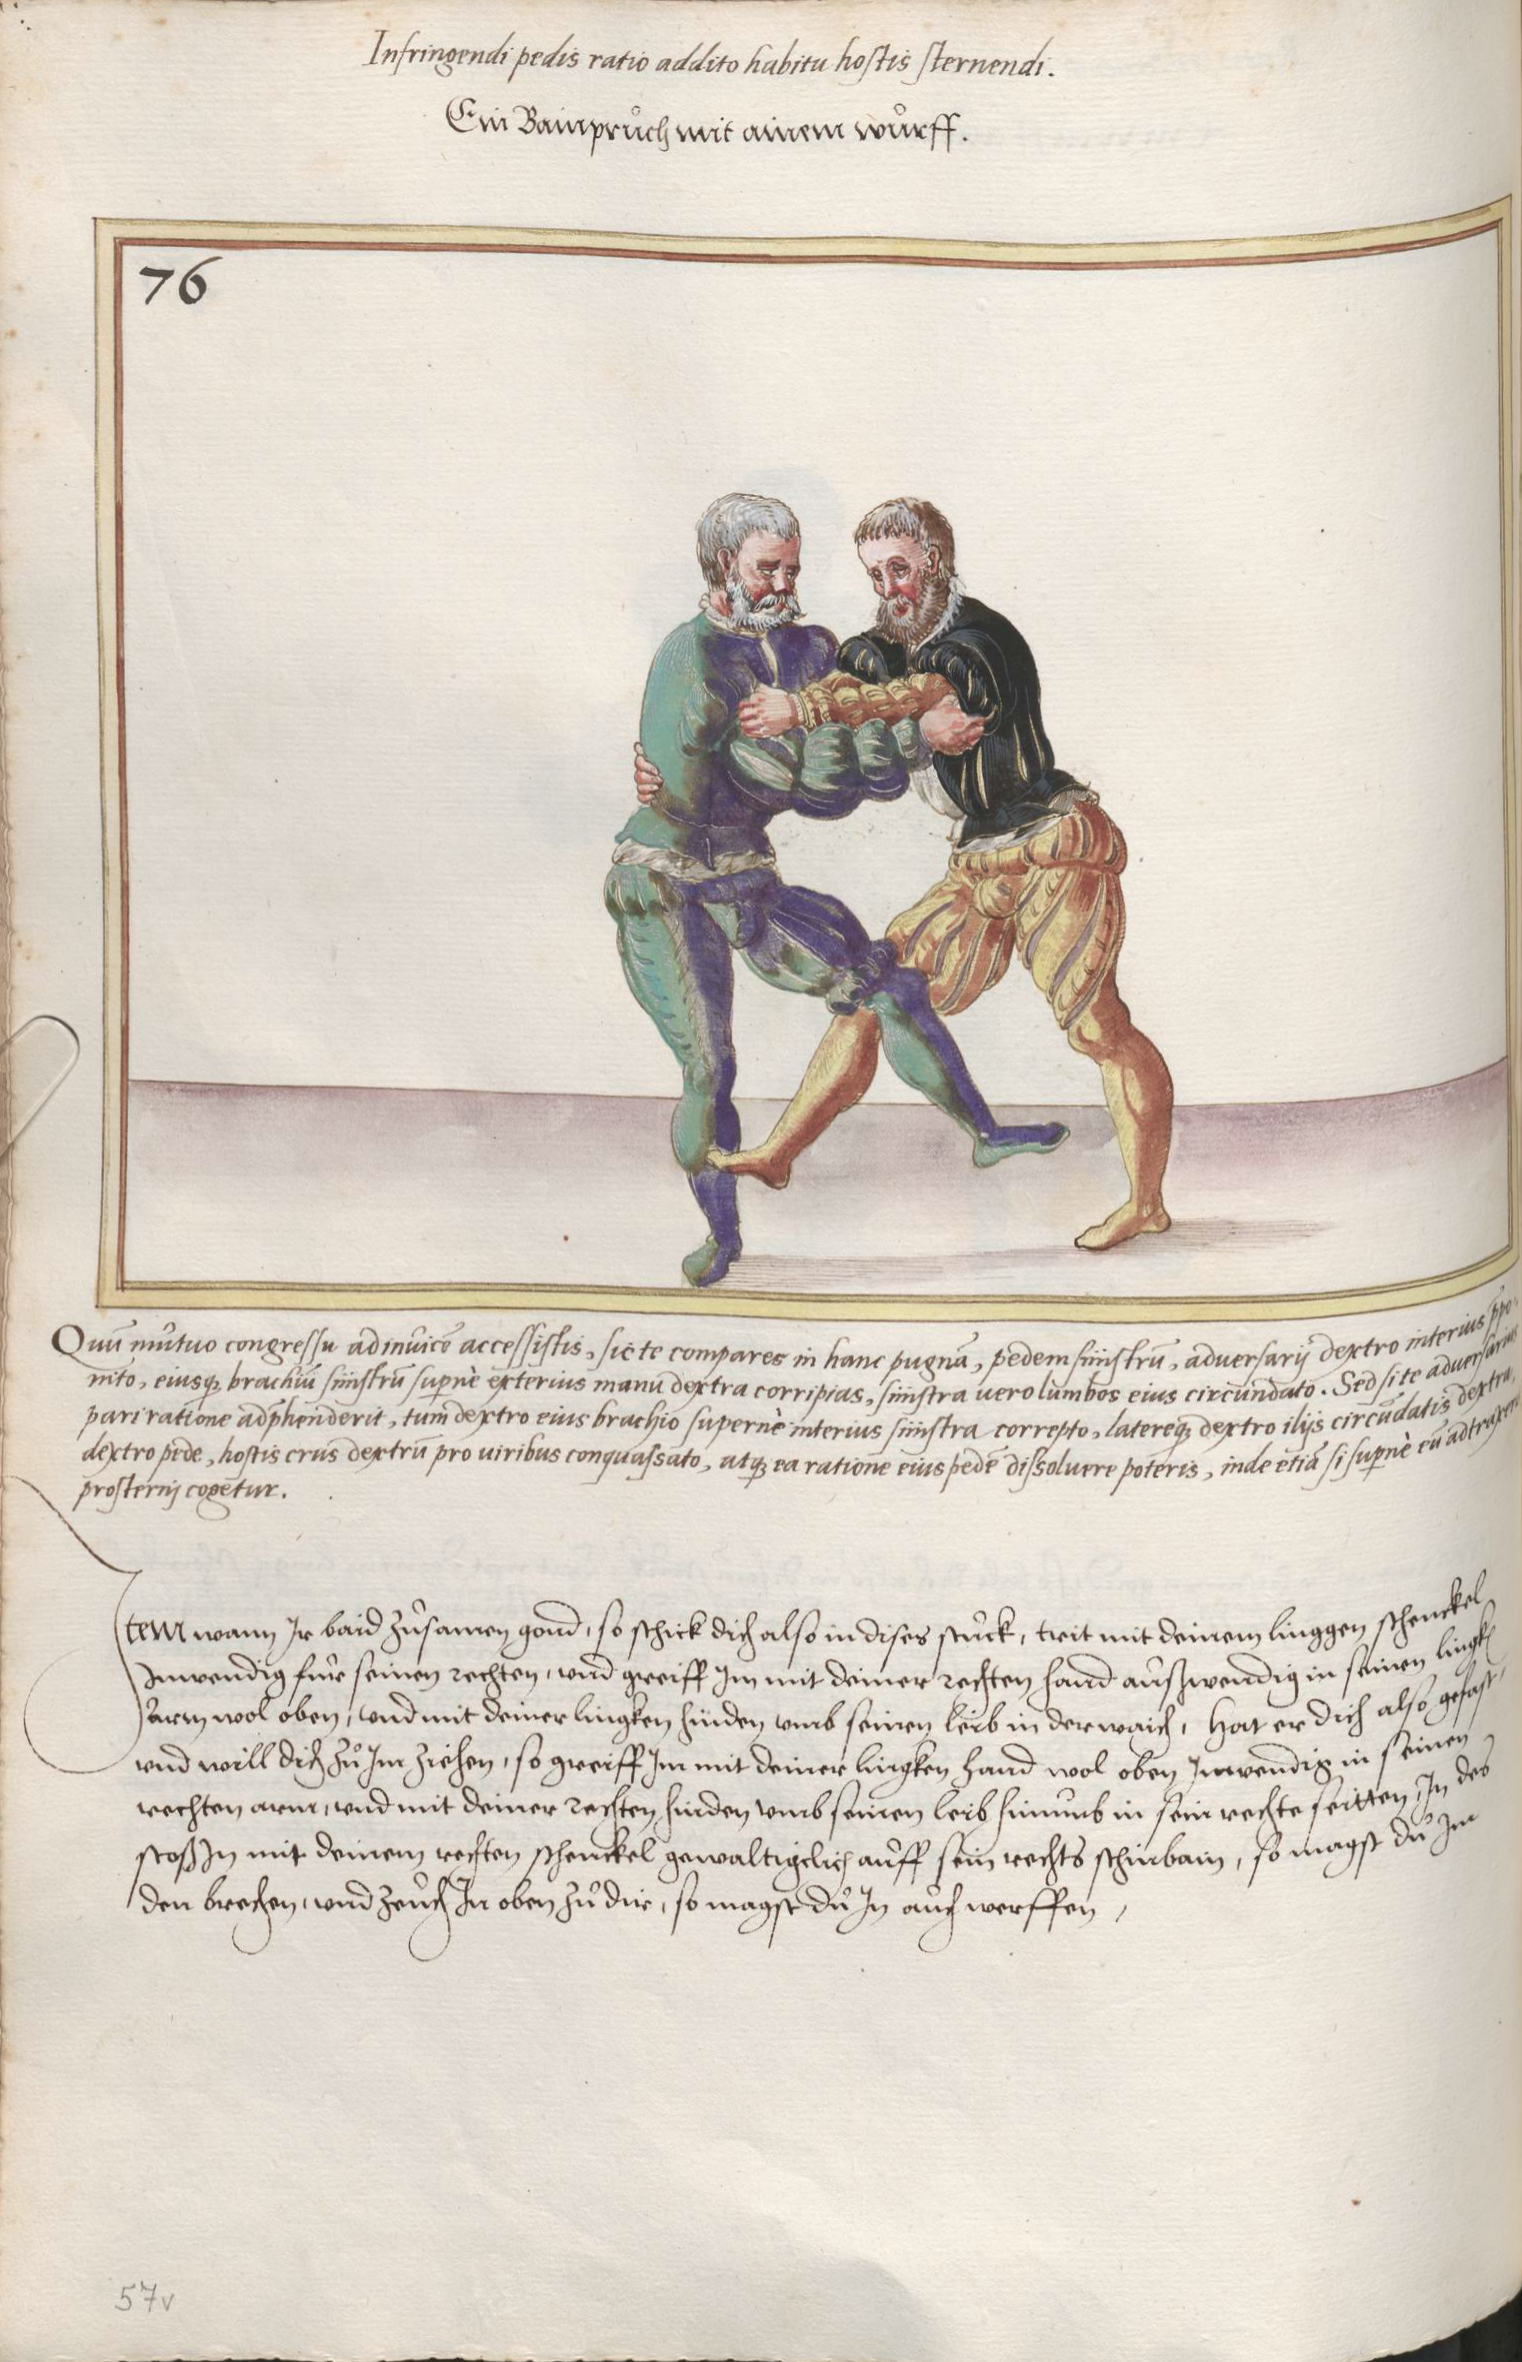 Infringendi pedis ratio addito habitu hostis sternendi.
Ein Bainpruͦch mit ainem wuͦrff.
76
Quū mutuo congressu adinuicē accessistis, sic te compares in hanc pugnā, pedem sinistrū, aduersarij dextro interius ppo-
nito, eiusq; brachiū sinistrū supnè exterius manu dextra corripias, sinistra uero lumbos eius circundato. Sed si te aduersarius
pari ratione adphenderit, tum dextro eius brachio supernè interius sinistra correpto, latereq; dextro ilijs circūdatis dextra,
dextro pede, hostis crus dextrū pro uiribus conquassato, atq; ea ratione eius pedē dissoluere poteris, inde etiā si supnè eū adtraxeris
prosterni cogetur.
Item wann Ir baid zuͦsamen gond, so schick dich also in dises stuck, trit mit deinem linggen schenckel
Inwendig fuͤr seinen rechten, vnd greiff Im mit deiner rechten hand aussz wendig in seinen lingkē
arm wol oben, vnd mit deiner lingken hinden vmb seinen leib in der waich, Hat er dich also gefast,
vnd will dich zuͦ Im ziehen, so greiff Im mit deiner lingken hand wol oben Inwendig in seinen
rechten arm, vnd mit deiner rechten hinden vmb seinen leib hinumb in sein rechte seitten, In des
stoß In mit deinem rechten schenckel gewaltigclich auff sein rechts schinbain, so magst du Im
den brechen, vnd zeuch In oben zuͦ dir, so magst du In auch werffen,
57v